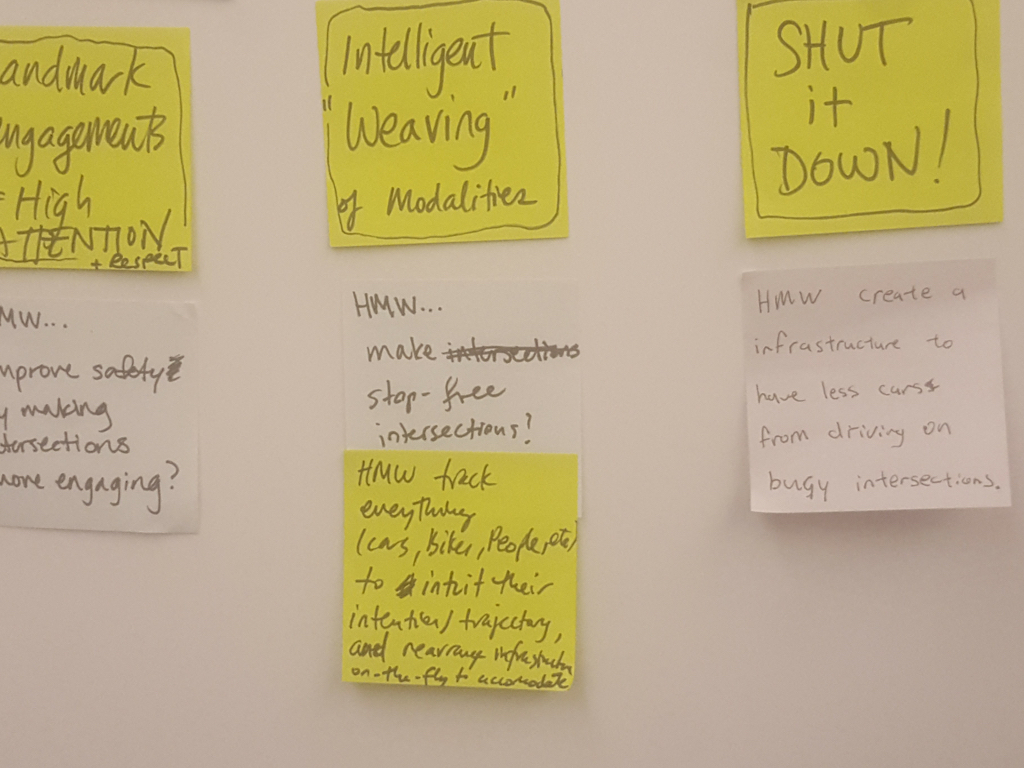 andmark
ngagements
= High
ATTENTION
+ RESPECT
MW...
mprove safety
y making
tersections
more engaging?
Intelligent
"Weaving"
of Modalities
HMW...
make intersections
stop-free
intersections?
HMW track
everything
(cars, Bikes, People, etc)
to intuit their
intention/trajectory,
and rearrange infrastructure
on-the-fly to accomodate
SHUT
it
DOWN!
HMW create a
infrastructure to
have less cars
from driving on
busy intersections.